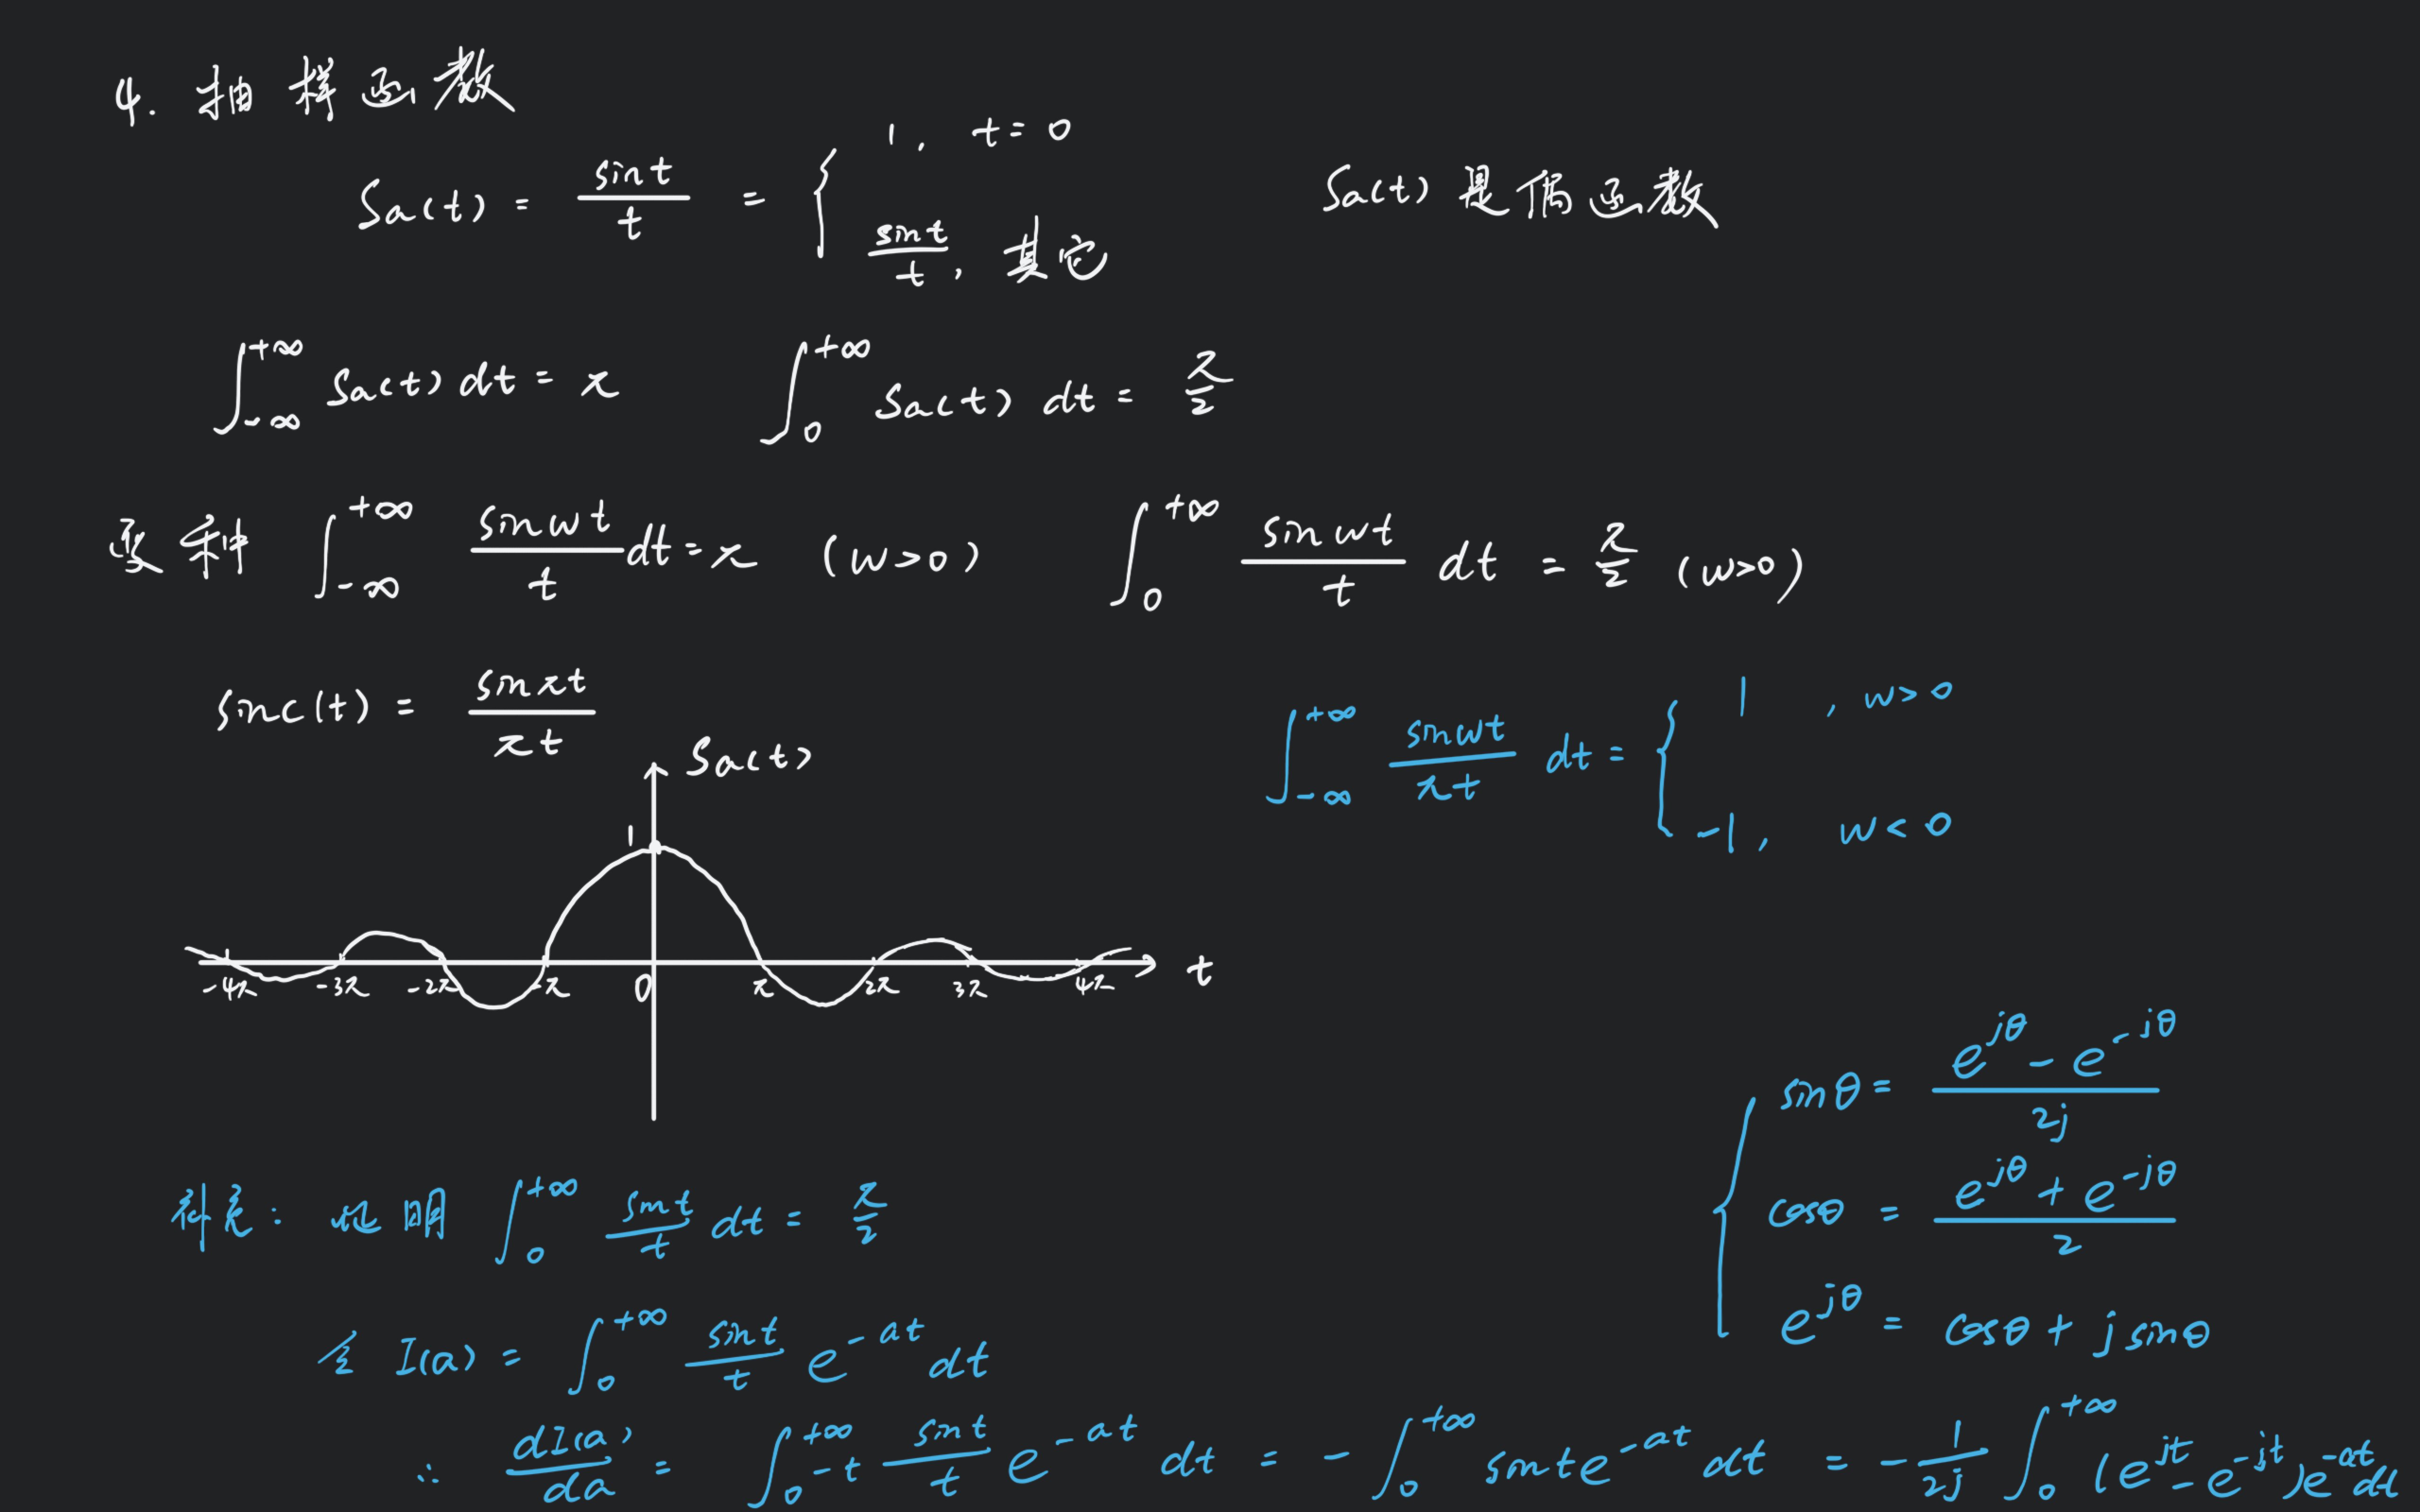 4. 抽样函数
Sa(t) = sint/t = { 1, t=0 ; sint/t, 其它    Sa(t) 是偶函数
∫_{-∞}^{+∞} Sa(t) dt = π    ∫_{0}^{+∞} Sa(t) dt = π/2
∫_{-∞}^{+∞} sinwt/t dt = π (w>0)    ∫_{0}^{+∞} sinwt/t dt = π/2 (w>0)
sinc(t) = sinπt/πt    ∫_{-∞}^{+∞} sinwt/πt dt = { 1, w>0 ; -1, w<0
Sa(t)
1
-4π -3π -2π -π 0 π 2π 3π 4π t
sinθ = (e^{jθ} - e^{-jθ})/2j
cosθ = (e^{jθ} + e^{-jθ})/2
e^{jθ} = cosθ + j sinθ
补充: 证明 ∫_{0}^{+∞} sint/t dt = π/2
令 I(a) = ∫_{0}^{+∞} sint/t e^{-at} dt
∴ dI(a)/da = ∫_{0}^{+∞} -t sint/t e^{-at} dt = -∫_{0}^{+∞} sint e^{-at} dt = -1/2j ∫_{0}^{+∞} (e^{jt} - e^{-jt}) e^{-at} dt